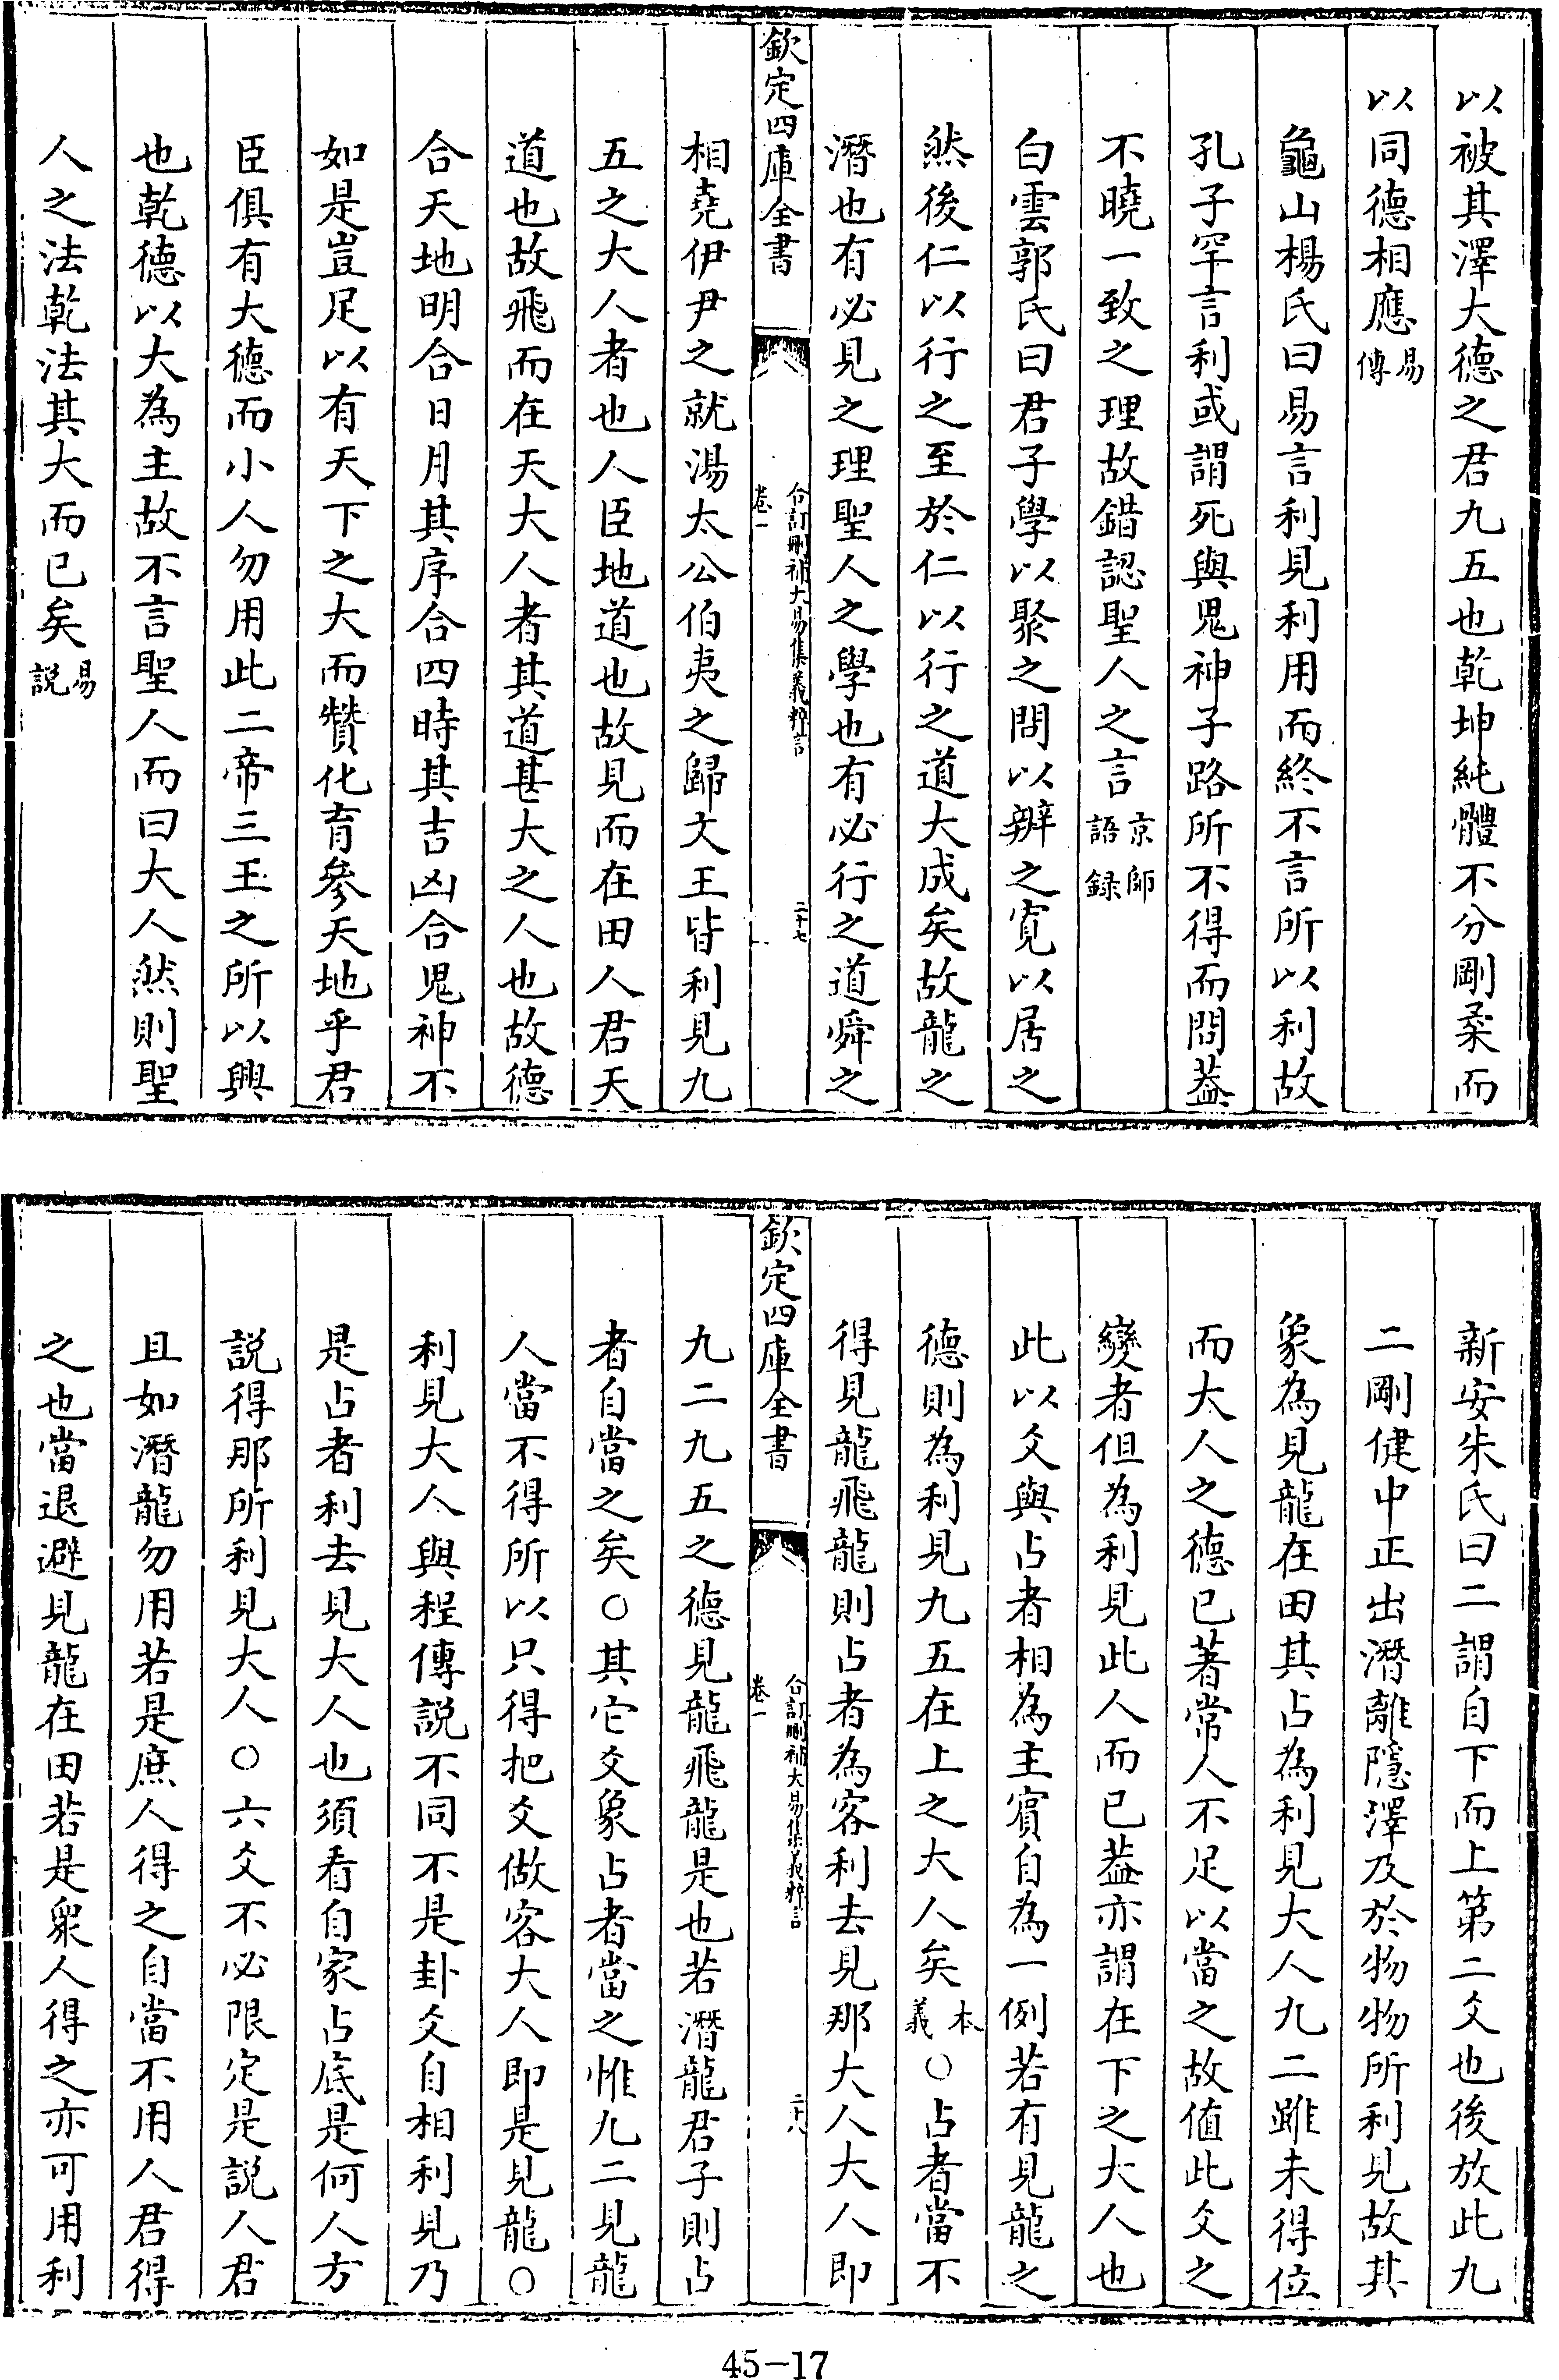 以被其澤大德之君九五也乾坤純體不分剛柔而
以同德相應易傳
龜山楊氏曰易言利見利用而終不言所以利故
孔子罕言利或謂死與鬼神子路所不得而問葢
不曉一致之理故錯認聖人之言京師語録
白雲郭氏曰君子學以聚之問以辨之寛以居之
然後仁以行之至於仁以行之道大成矣故龍之
潛也有必見之理聖人之學也有必行之道舜之
欽定四庫全書
合訂刪補大易集義粹言
卷一
二十七
相堯伊尹之就湯太公伯夷之歸文王皆利見九
五之大人者也人臣地道也故見而在田人君天
道也故飛而在天大人者其道甚大之人也故德
合天地明合日月其序合四時其吉凶合鬼神不
如是豈足以有天下之大而贊化育參天地乎君
臣俱有大德而小人勿用此二帝三王之所以興
也乾德以大為主故不言聖人而曰大人然則聖
人之法乾法其大而已矣易説
新安朱氏曰二謂自下而上第二爻也後放此九
二剛健中正出潛離隱澤及於物物所利見故其
象為見龍在田其占為利見大人九二雖未得位
而大人之德已著常人不足以當之故值此爻之
變者但為利見此人而已葢亦謂在下之大人也
此以爻與占者相為主賓自為一例若有見龍之
德則為利見九五在上之大人矣本義○占者當不
得見龍飛龍則占者為客利去見那大人大人即
欽定四庫全書
合訂刪補大易集義粹言
卷一
二十八
九二九五之德見龍飛龍是也若潛龍君子則占
者自當之矣○其它爻象占者當之惟九二見龍
人當不得所以只得把爻做客大人即是見龍○
利見大人與程傳説不同不是卦爻自相利見乃
是占者利去見大人也須看自家占底是何人方
説得那所利見大人○六爻不必限定是説人君
且如潛龍勿用若是庶人得之自當不用人君得
之也當退避見龍在田若是衆人得之亦可用利
45-17